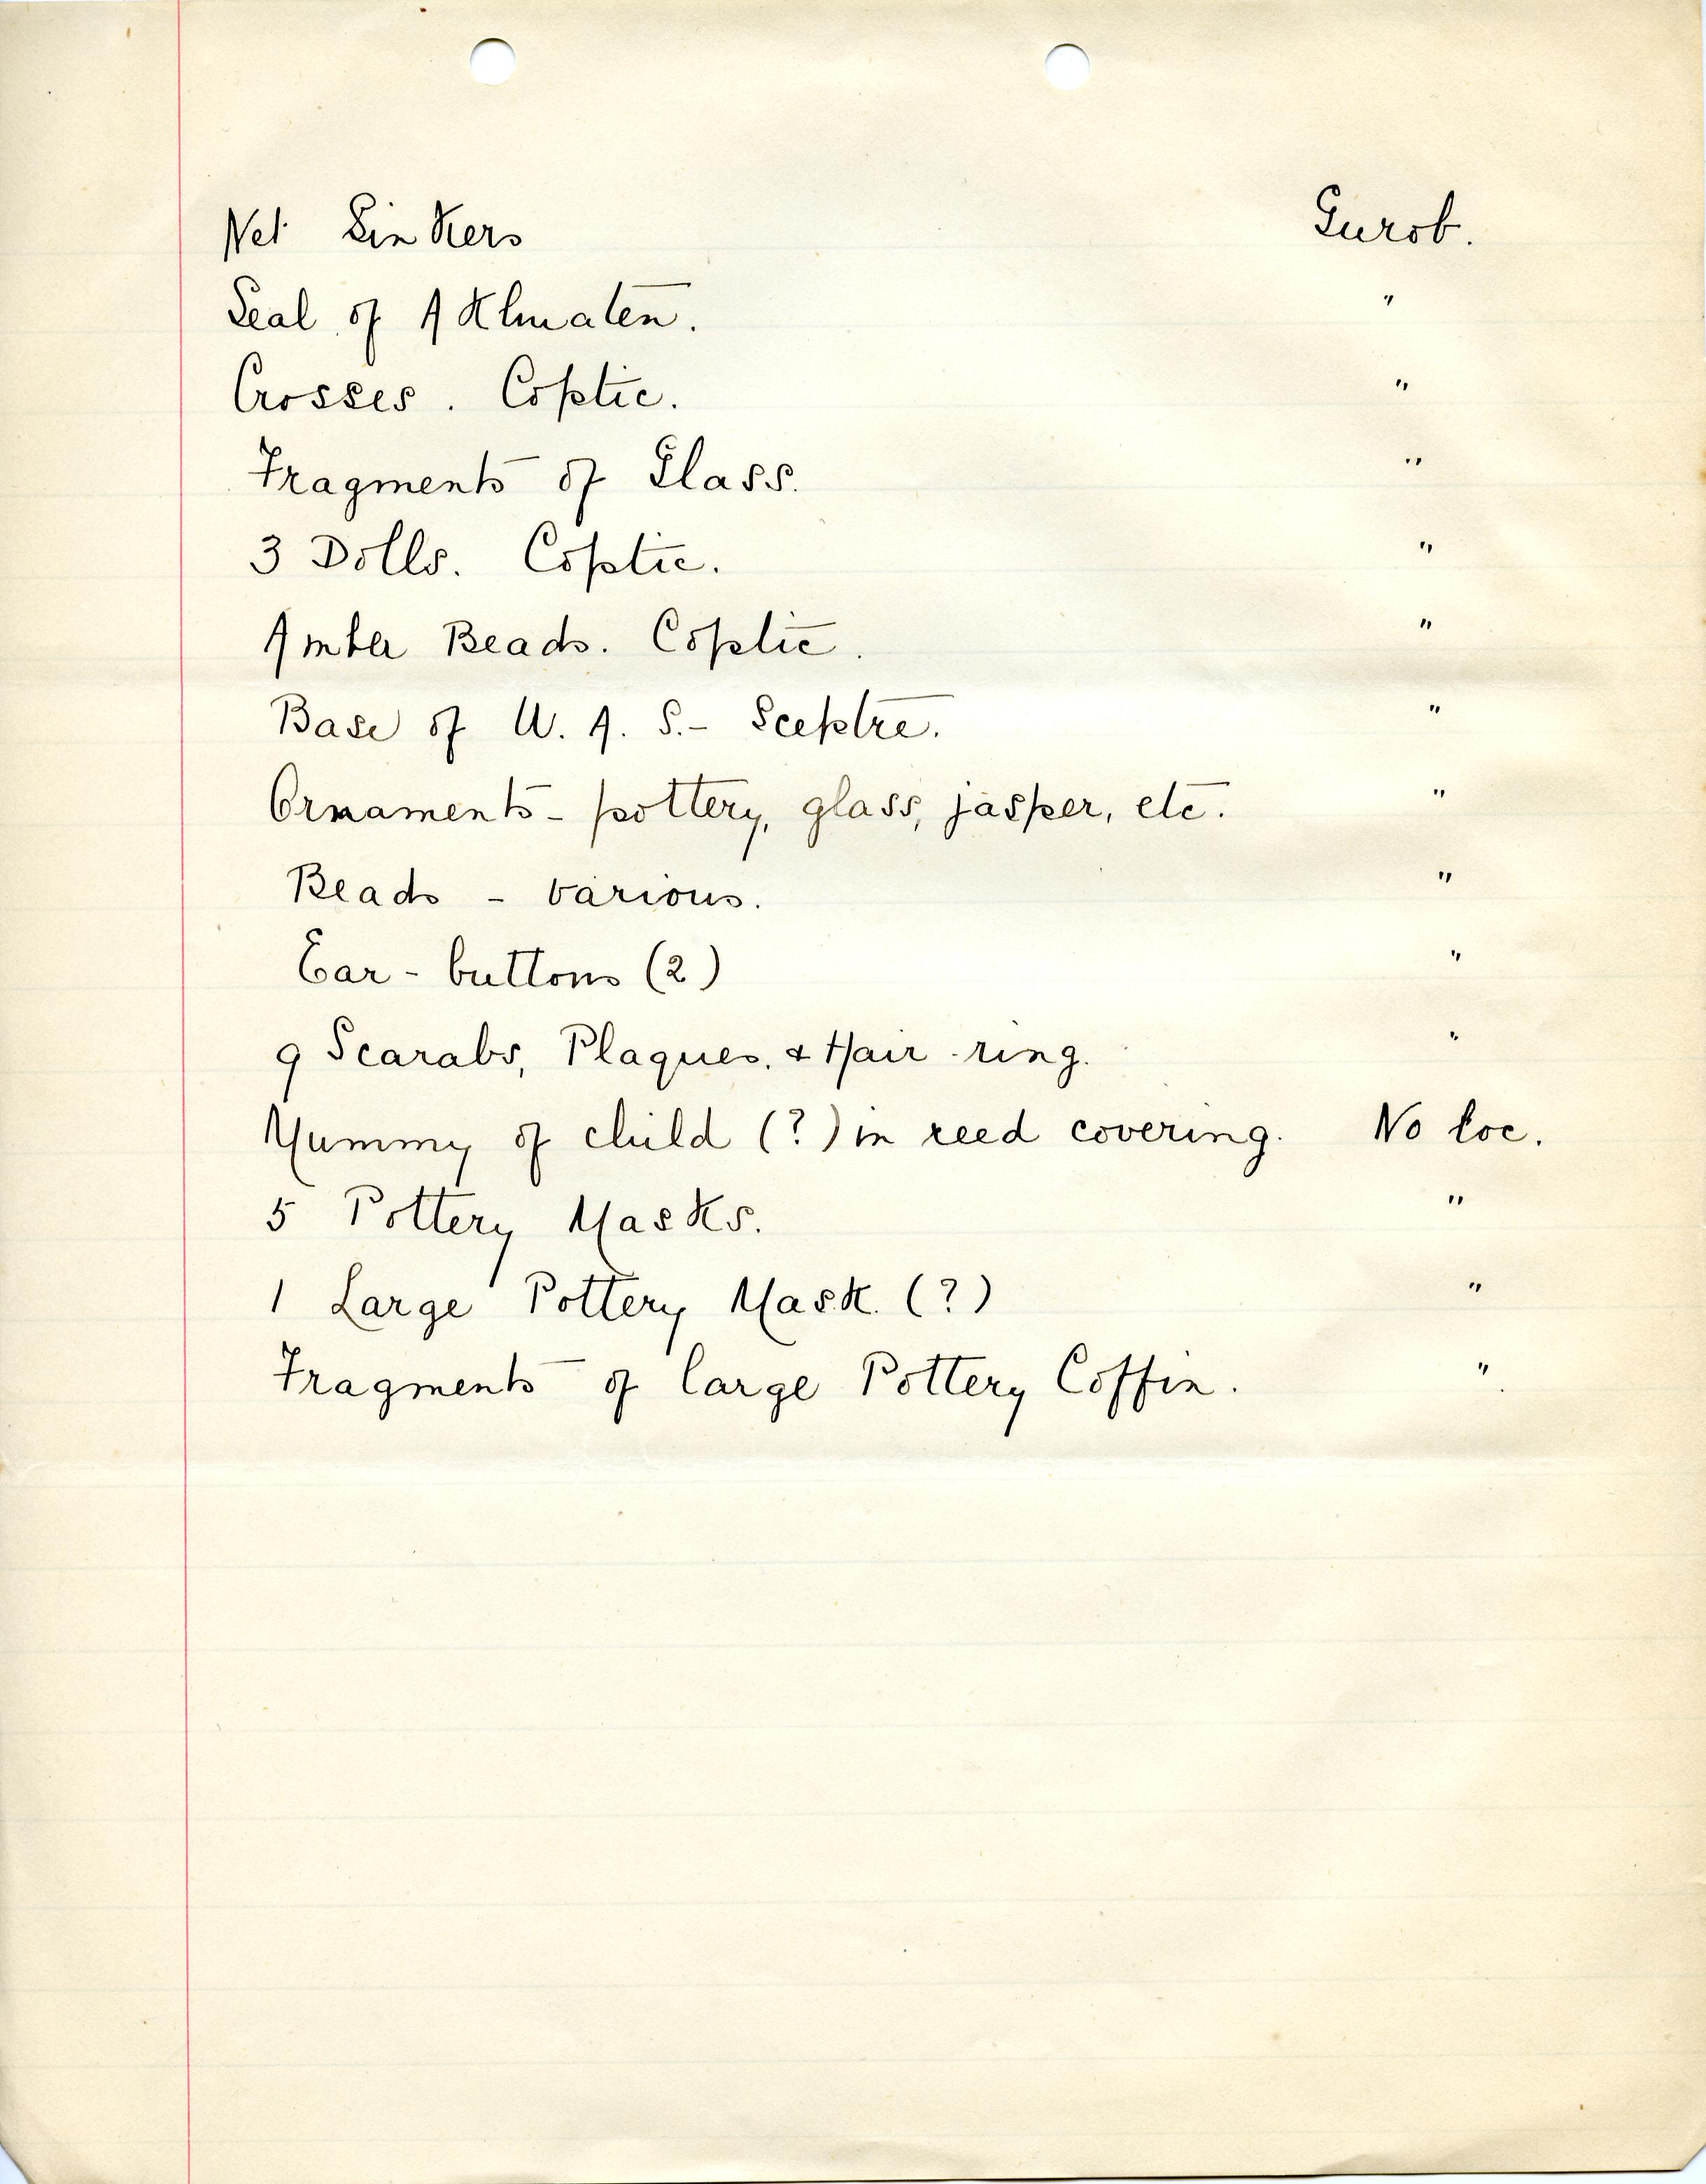 Net Sinkers Gurob.
Seal of Akhnaten. "
Crosses. Coptic. "
Fragments of Glass. "
3 Dolls. Coptic. "
Amber Beads. Coptic. "
Base of W. A. S. - Sceptre. "
Ornaments - pottery, glass, jasper, etc. "
Beads - various. "
Ear - buttons (2) "
9 Scarabs, Plaques, & Hair-ring. "
Mummy of child (?) in reed covering. No loc.
5 Pottery Masks. "
1 Large Pottery Mask. (?) "
Fragments of large Pottery Coffin. "